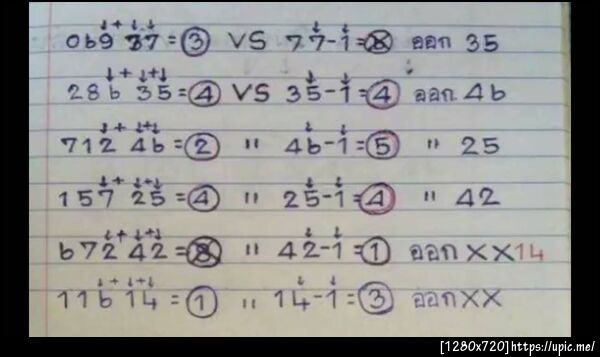 069 37 = 3 VS 77-1 = 8 ออก 35
286 35 = 4 VS 35-1 = 4 ออก 46
712 46 = 2 " 46-1 = 5 " 25
157 25 = 4 " 25-1 = 4 " 42
672 42 = 8 " 42-1 = 1 ออก XX14
116 14 = 1 " 14-1 = 3 ออก XX
[1280x720]https://upic.me/